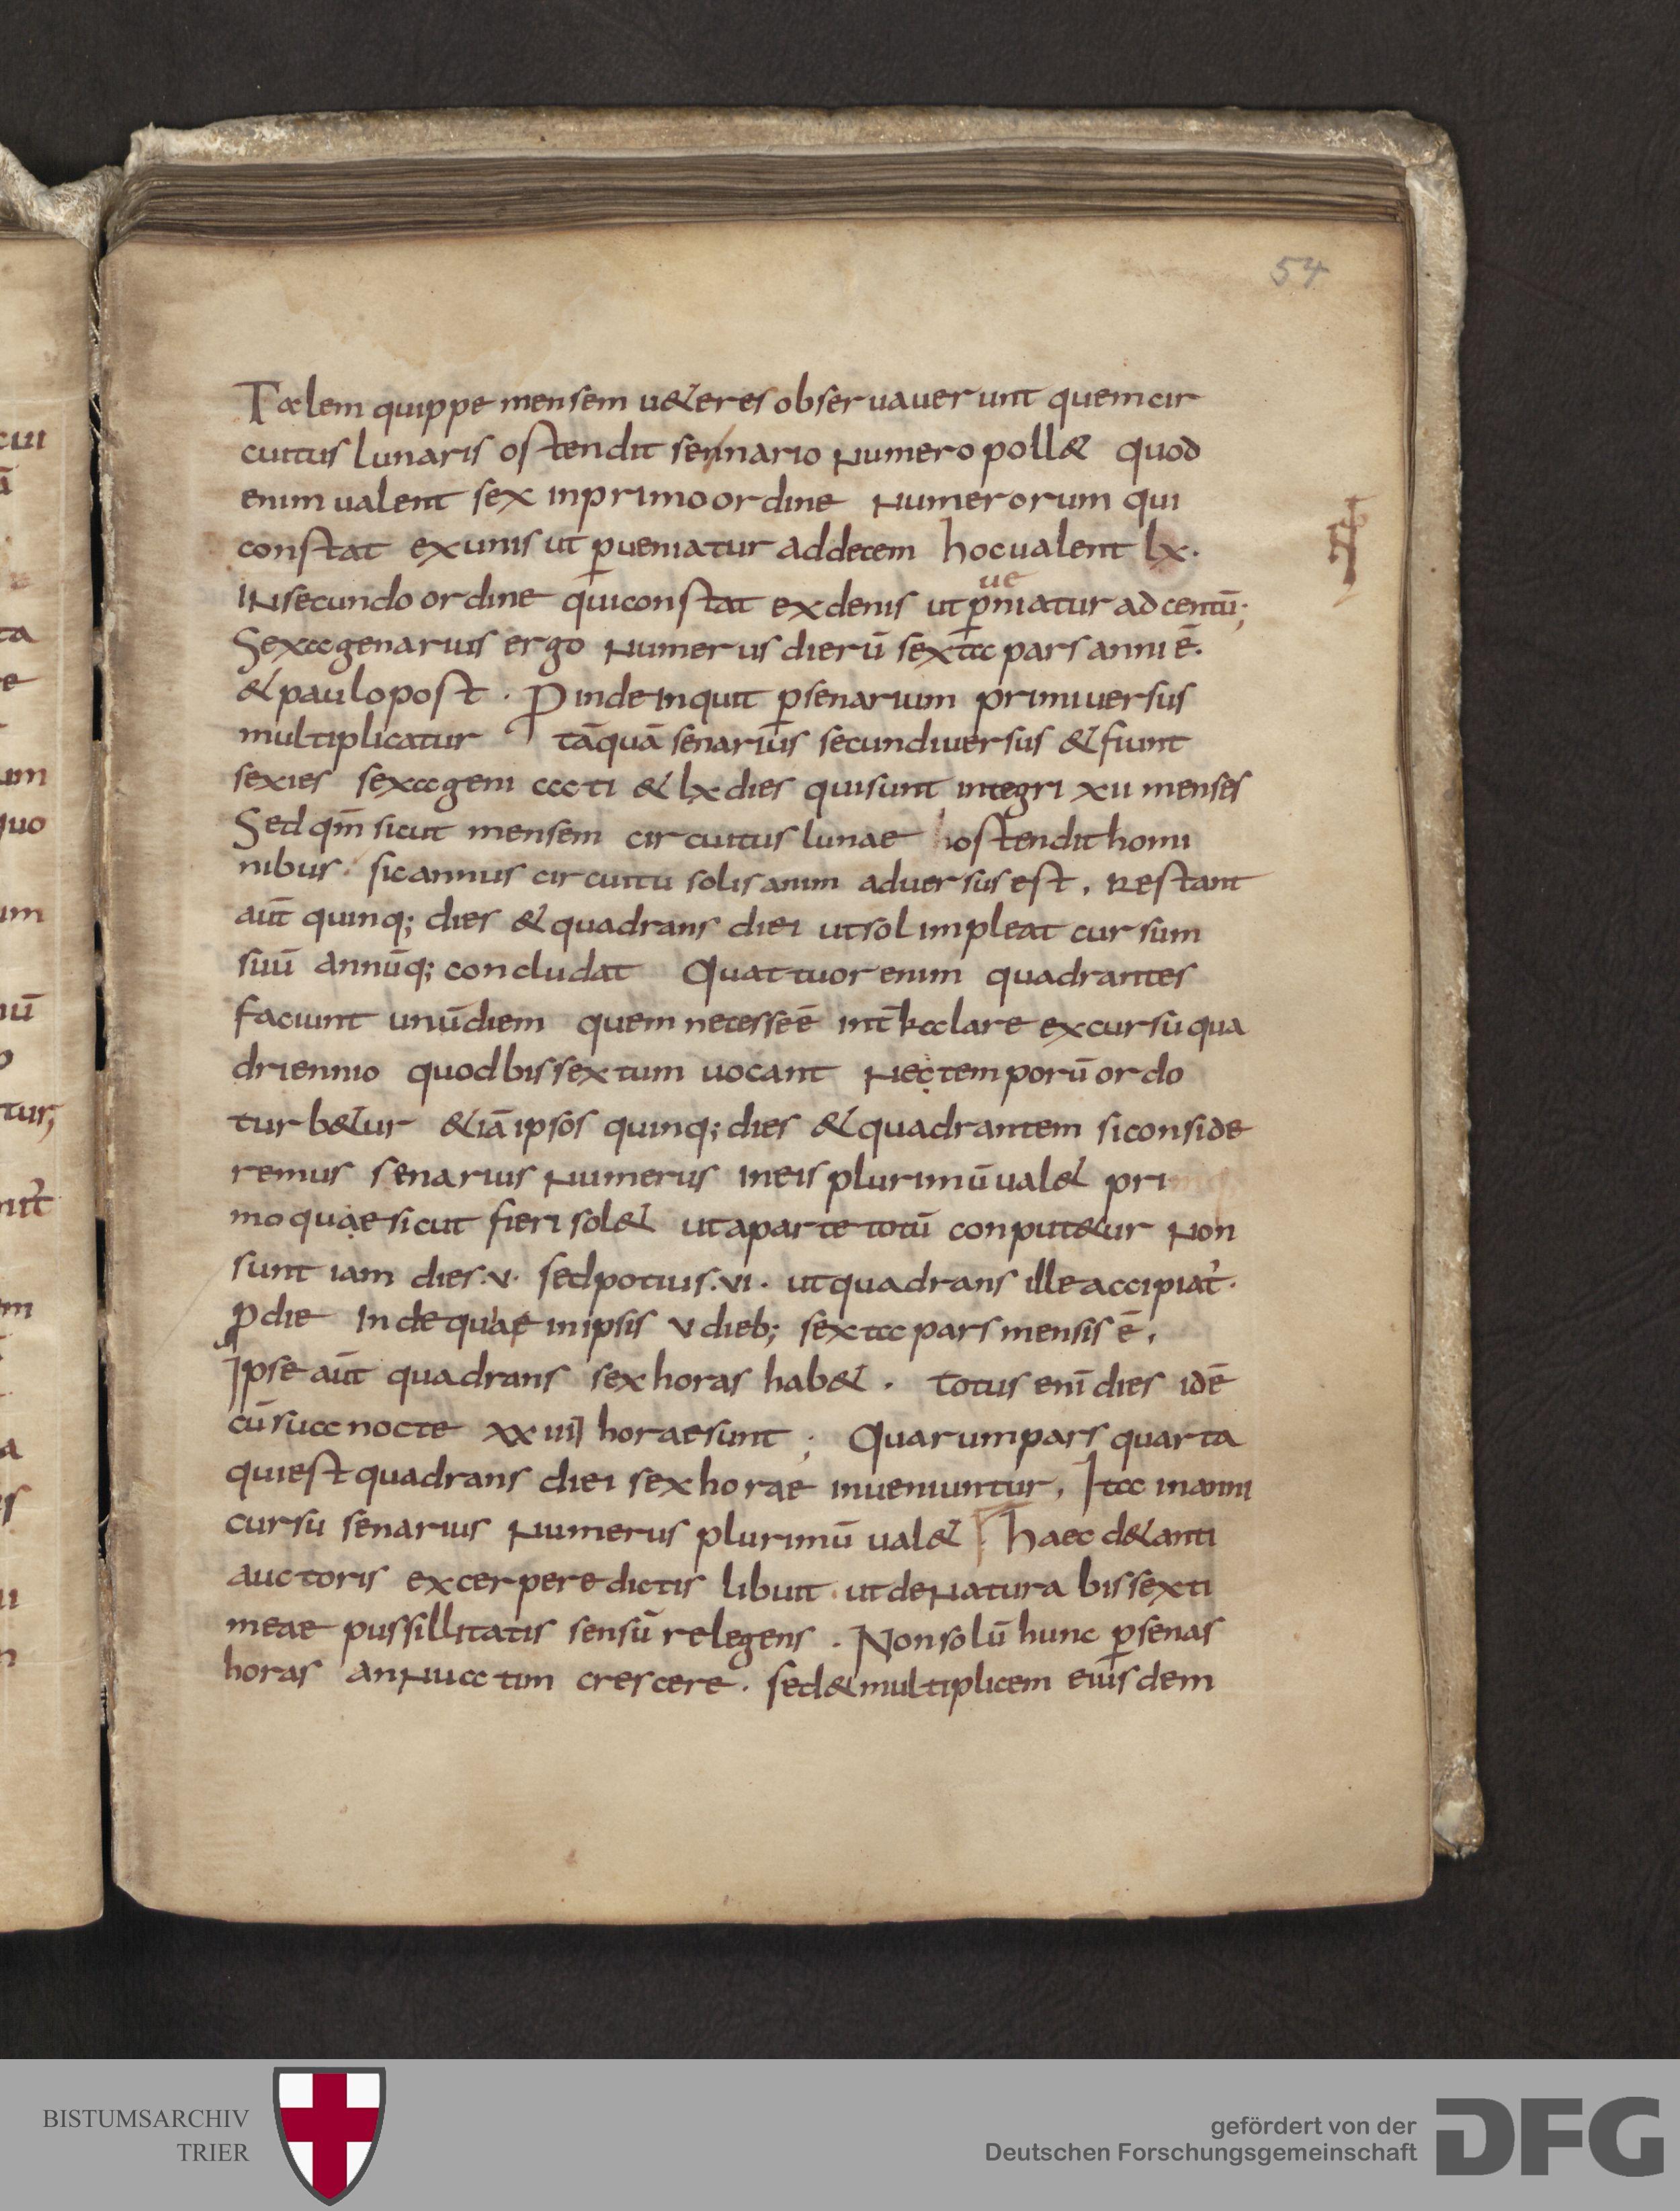 54
Talem quippe mensem u&eres obseruauerunt quem cir
cuitus lunaris ostendit sennario numero poll& quod
enim ualent sex in primo ordine numerorum qui
constat ex unis ut ꝑueniatur ad decem hoc ualent lx.
In secundo ordine qui constat ex denis ut ꝑueniatur ad centū;
Sexagenarius ergo numerus dierū sexta pars anni ē.
& paulo post. Proinde inquit ꝑ senarium primi uersus
multiplicatur tāquā senarius secundi uersus & fiunt
sexies sexageni ccc ti & lx dies qui sunt integri xii menses
Sed qm̄ sicut mensem circuitus lunae ostendit homi
nibus. sic annus circuitu solis anim aduersus est. Restant
aut̄ quinq; dies & quadrans diei ut sol impleat cursum
suū annūq; concludat Quattuor enim quadrantes
faciunt unū diem quem necesse ē int̄kalare excursu qua
driennio quod bissextum uocant Nec temporū ordo
turb&ur &iā ipsos quinq; dies & quadrantem si conside
remus senarius numerus in eis plurimū ual& pri
mo quae sicut fieri sol& ut a parte totū conput&ur Non
sunt iam dies .v. sed potius .vi. ut quadrans ille accipiat᷑.
ꝓ die Inde quae in ipsis v dieb; sexta pars mensis ē.
Ipse aut̄ quadrans sex horas hab&. Totus enī dies id ē
cū sua nocte xxiiii horae sunt; Quarum pars quarta
qui est quadrans diei sex horae inueniuntur. Ita in anni
cursu senarius numerus plurimū ual& haec d& anti
auctoris excerpere dictis libuit. ut de natura bissexti
meae pussillitatis sensū relegens. Non solū hunc ꝑ senas
horas annuatim crescere. sed & multiplicem eiusdem
BISTUMSARCHIV
TRIER
gefördert von der
Deutschen Forschungsgemeinschaft
DFG